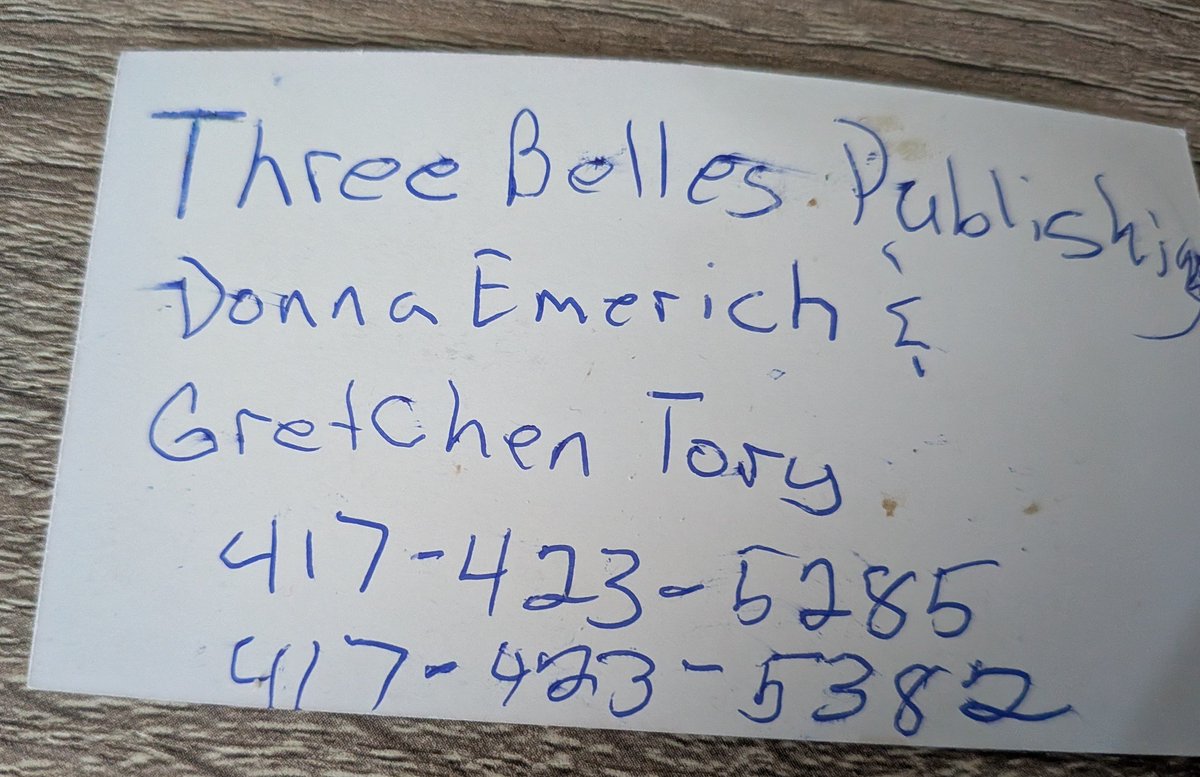 Three Belles Publishing
Donna Emerich &
Gretchen Tory
417-423-5285
417-423-5382